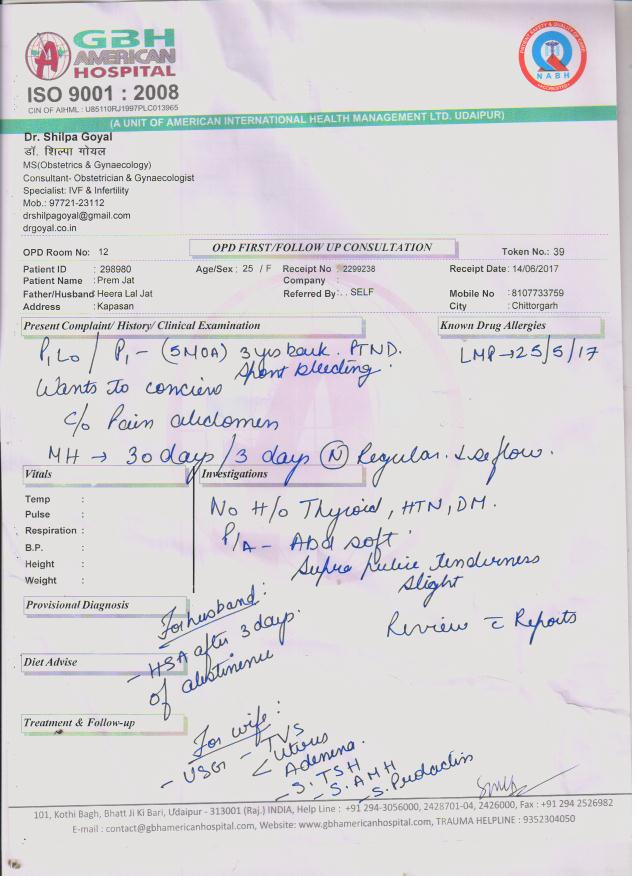 GBH
AMERICAN
HOSPITAL
ISO 9001 : 2008
CIN OF AIHML : U85110RJ1997PLC013965
NABH
(A UNIT OF AMERICAN INTERNATIONAL HEALTH MANAGEMENT LTD. UDAIPUR)
Dr. Shilpa Goyal
डॉ. शिल्पा गोयल
MS(Obstetrics & Gynaecology)
Consultant- Obstetrician & Gynaecologist
Specialist: IVF & Infertility
Mob.: 97721-23112
drshilpagoyal@gmail.com
drgoyal.co.in
OPD Room No: 12 OPD FIRST/FOLLOW UP CONSULTATION Token No.: 39
Patient ID : 298980 Age/Sex : 25 / F Receipt No : 2299238 Receipt Date: 14/06/2017
Patient Name : Prem Jat Company :
Father/Husband Heera Lal Jat Referred By: . . SELF Mobile No : 8107733759
Address : Kapasan City : Chittorgarh
Present Complaint/ History/ Clinical Examination Known Drug Allergies
P1L0 / P1 - (5MOA) 3 yrs back. PTND. LMP→25/5/17
Spont bleeding.
Wants to concieve
c/o Pain abdomen
MH → 30 days / 3 days (N) Regular. flow.
Vitals Investigations
Temp :
Pulse :
Respiration :
B.P. :
Height :
Weight :
No H/o Thyroid, HTN, DM.
P/A - Abd soft.
Supra pubic tenderness
slight
Provisional Diagnosis
For husband:
- HSA after 3 days
of abstinence
Review c̄ Reports
Diet Advise
Treatment & Follow-up
For wife:
- USG - TVS
< Uterus
Adenexa.
- S. TSH
- S. AMH
- S. Prolactin
101, Kothi Bagh, Bhatt Ji Ki Bari, Udaipur - 313001 (Raj.) INDIA, Help Line : +91 294-3056000, 2428701-04, 2426000, Fax : +91 294 2526982
E-mail : contact@gbhamericanhospital.com, Website: www.gbhamericanhospital.com, TRAUMA HELPLINE : 9352304050